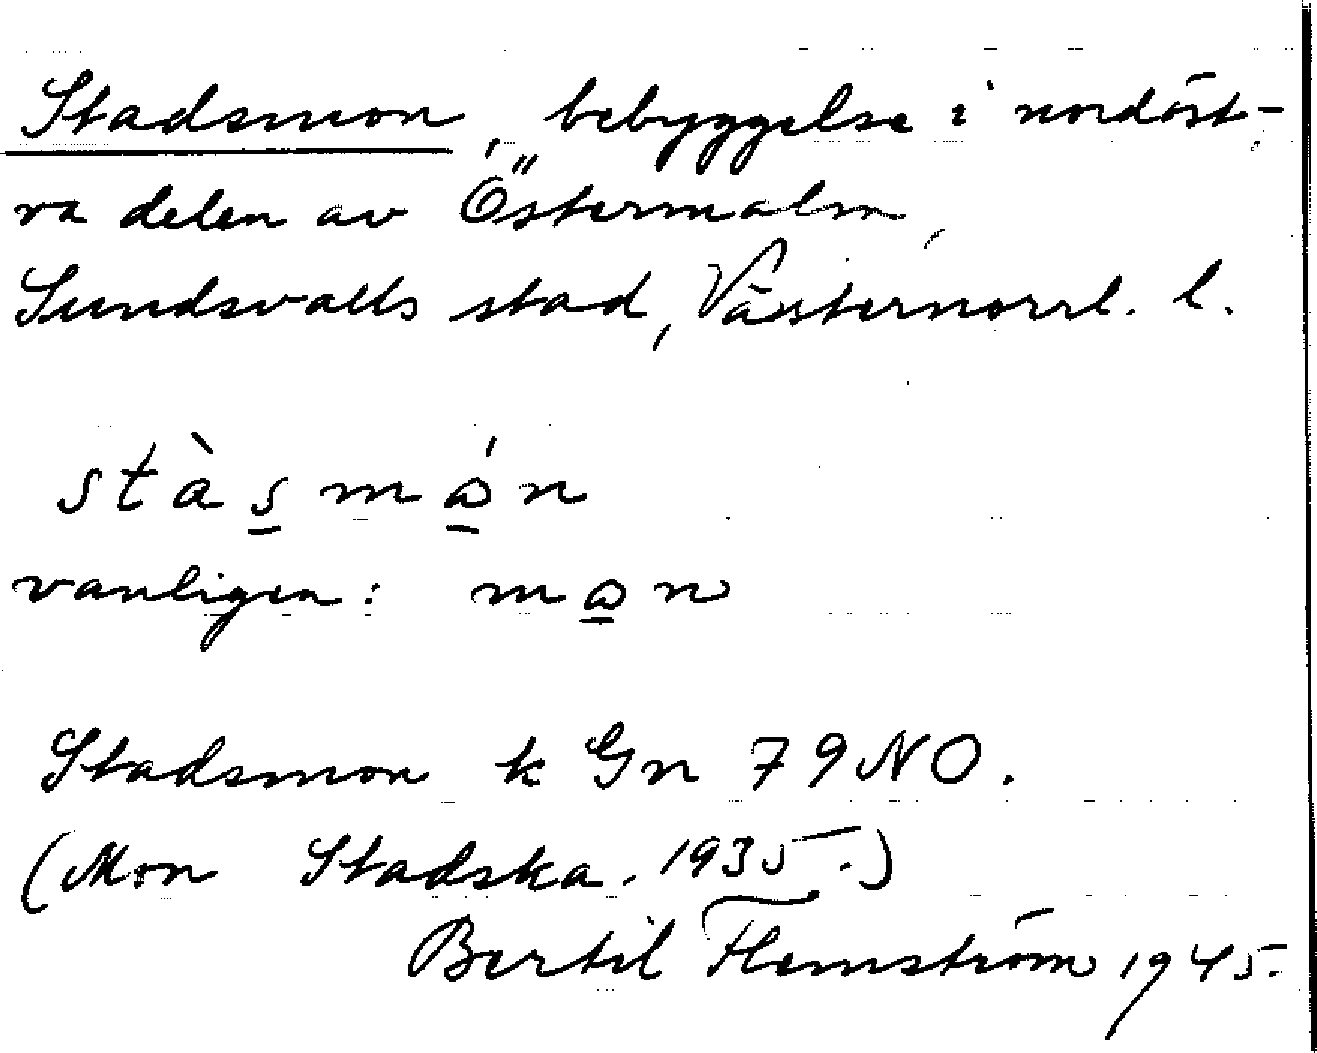 Stadsmon, bebyggelse i nordöst-
ra delen av Östermalm,
Sundsvalls stad, Västernorrl. l.
stàs̲mǻ̲n
vanligen: må̲n
Stadsmon k Gn 79NO.
(Mon Stadska. 1935.)
Bertil Flemström 1945.